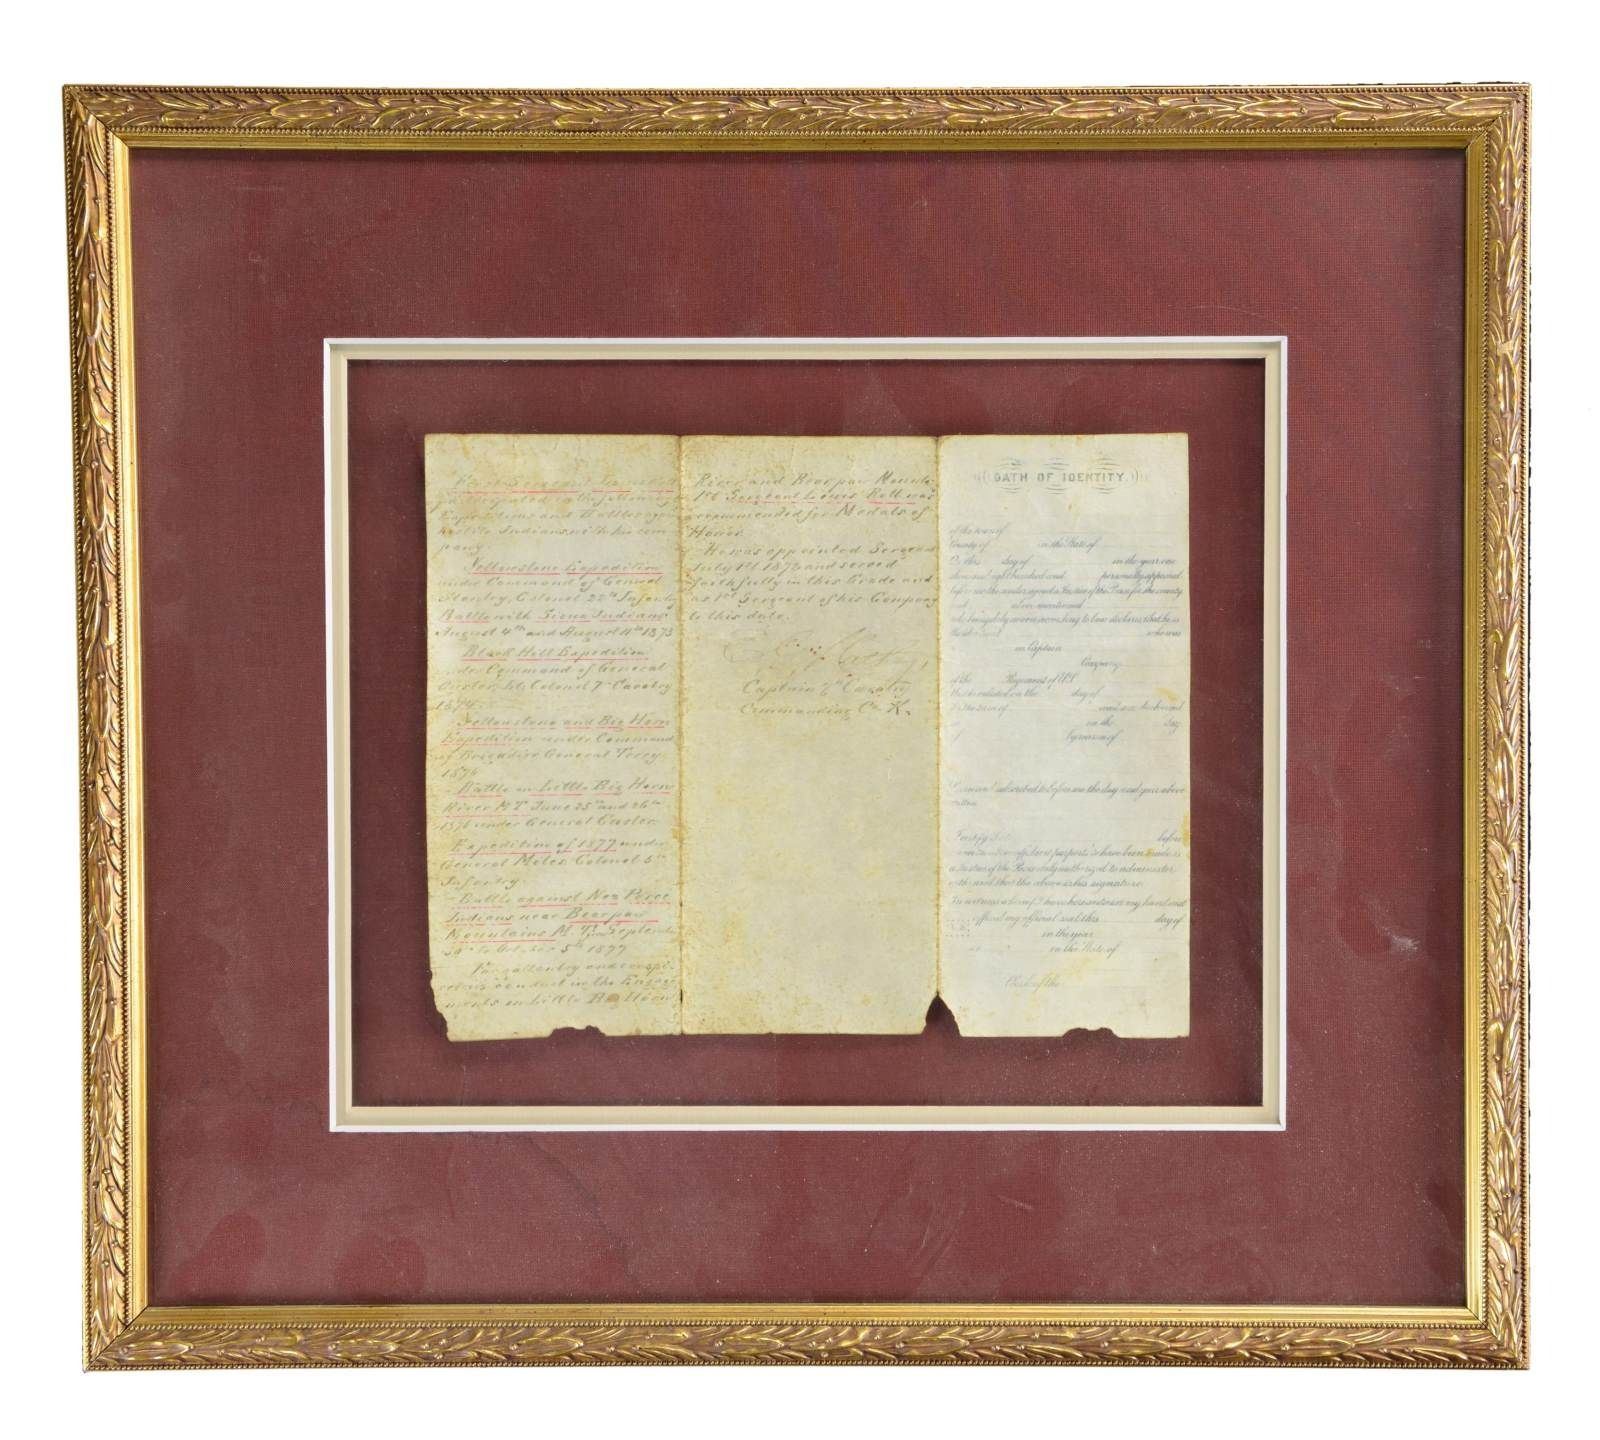 First Sergeant
participated in the following
Expeditions and Battles
hostile Indians with his com-
pany.
Yellowstone Expedition
under Command of General
Stanley, Colonel 22nd Infantry
Battle with Sioux Indians
August 4th and August 11th 1873
Black Hill Expedition
under Command of General
Custer, Lt. Colonel 7th Cavalry
1874.
Yellowstone and Big Horn
Expedition under Command
of Brigadier General Terry
1876
Battle on Little Big Horn
River M.T. June 25th and 26th
1876 under General Custer
Expedition of 1877 under
General Miles, Colonel 5th
Infantry.
Battle against Nez Perce
Indians near Bearpaw
Mountains M.T. September
30th to October 5th 1877
For gallantry and conspi-
cuous conduct in the Engage-
ments on Little Big Horn
River and Bear paw Mount.
1st Sergeant Louis Rott was
recommended for Medals of
Honor.
He was appointed Sergeant
July 1st 1873 and served
faithfully in this Grade and
as 1st Sergeant of his Company
to this date.
Captain 7th Cavalry
Commanding Co. K.
OATH OF IDENTITY.
of the town of
County of in the State of
On this day of in the year one
thousand eight hundred and personally appeared
before me the undersigned a Justice of the Peace for the county
and above mentioned
who being duly sworn according to law declares that he is
the identical who was
a in Captain
Company
of the Regiment of U.S.
that he enlisted on the day of
for the term of and was discharged
at on the day
of by reason of
Sworn and subscribed to before me the day and year above
written.
I certify that before
whom the above affidavit purports to have been made is
a Justice of the Peace duly authorized to administer
oaths and that the above is his signature.
In witness whereof I have hereunto set my hand and
official seal this day of
in the year
at in the State of
Clerk of the